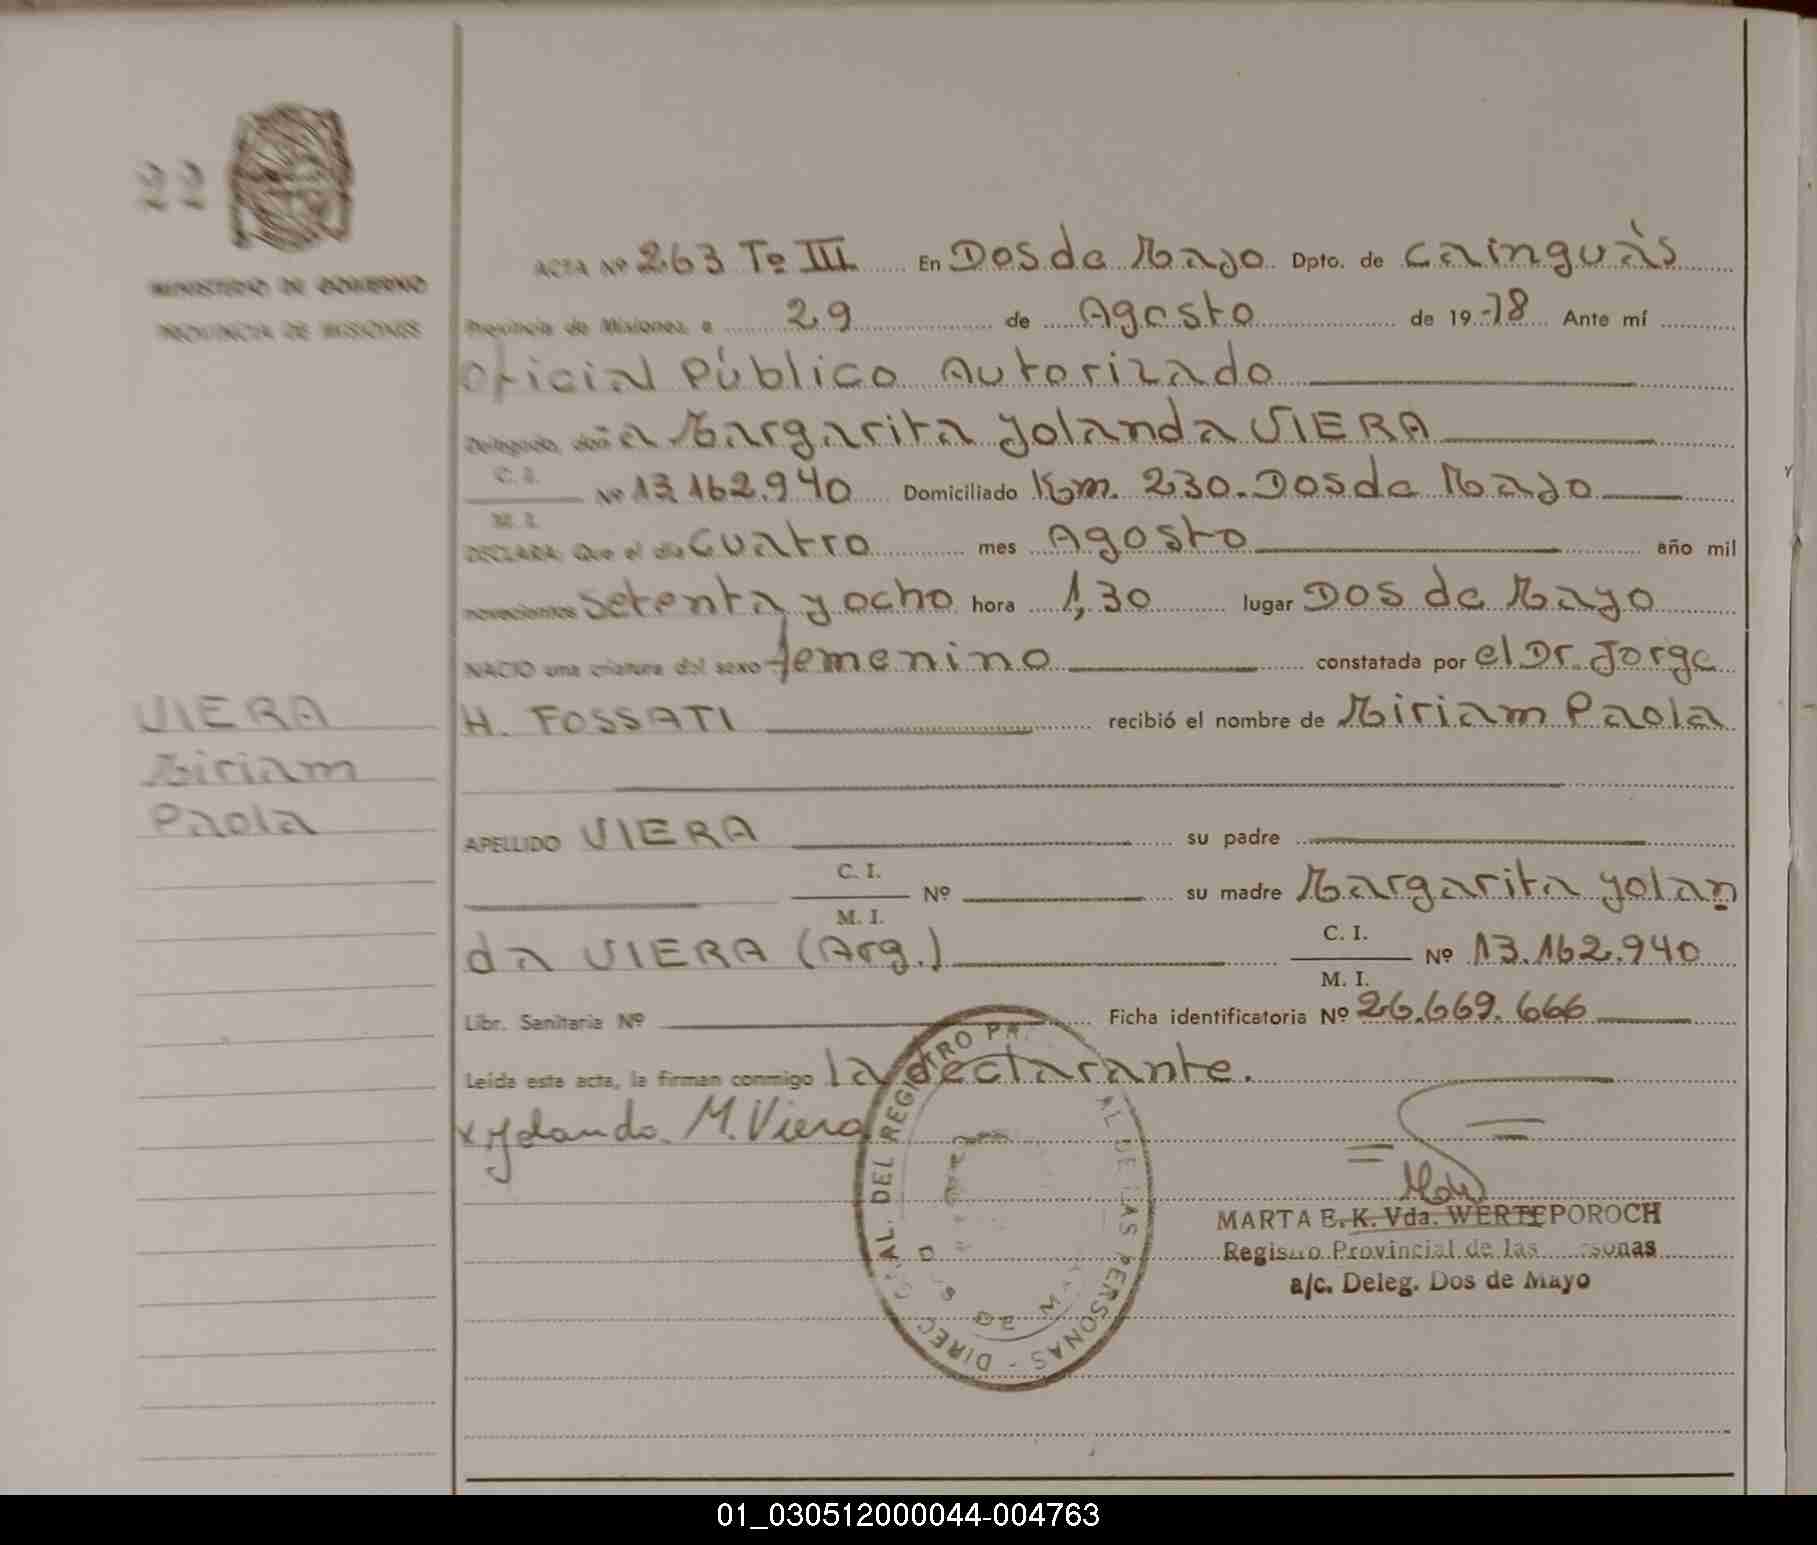 22
MINISTERIO DE GOBIERNO
PROVINCIA DE MISIONES
ACTA Nº 263 Tº III En Dos de Mayo Dpto. de Cainguàs
Provincia de Misiones, a 29 de Agosto de 19 78 Ante mí
Oficial Público Autorizado
Delegado, doñ a Margarita Yolanda VIERA
C. I.
Nº 13.162.940 Domiciliado Km. 230. Dos de Mayo
M. I.
DECLARA: Que el día Cuatro mes Agosto año mil
novecientos Setenta y ocho hora 1,30 lugar Dos de Mayo
NACIO una criatura del sexo femenino constatada por el Dr. Jorge
H. FOSSATI recibió el nombre de Miriam Paola
VIERA
Miriam
Paola
APELLIDO VIERA su padre
C. I.
Nº su madre Margarita Yolan
M. I.
da VIERA (Arg.) C. I. Nº 13.162.940
M. I.
Libr. Sanitaria Nº Ficha identificatoria Nº 26.669.666
Leída esta acta, la firman conmigo la declarante.
x Yolanda M. Viera
DIREC. GRAL. DEL REGISTRO PR AL DE LAS PERSONAS -
MARTA E. K. Vda. WERTEPOROCH
Registro Provincial de las sonas
a/c. Deleg. Dos de Mayo
01_030512000044-004763